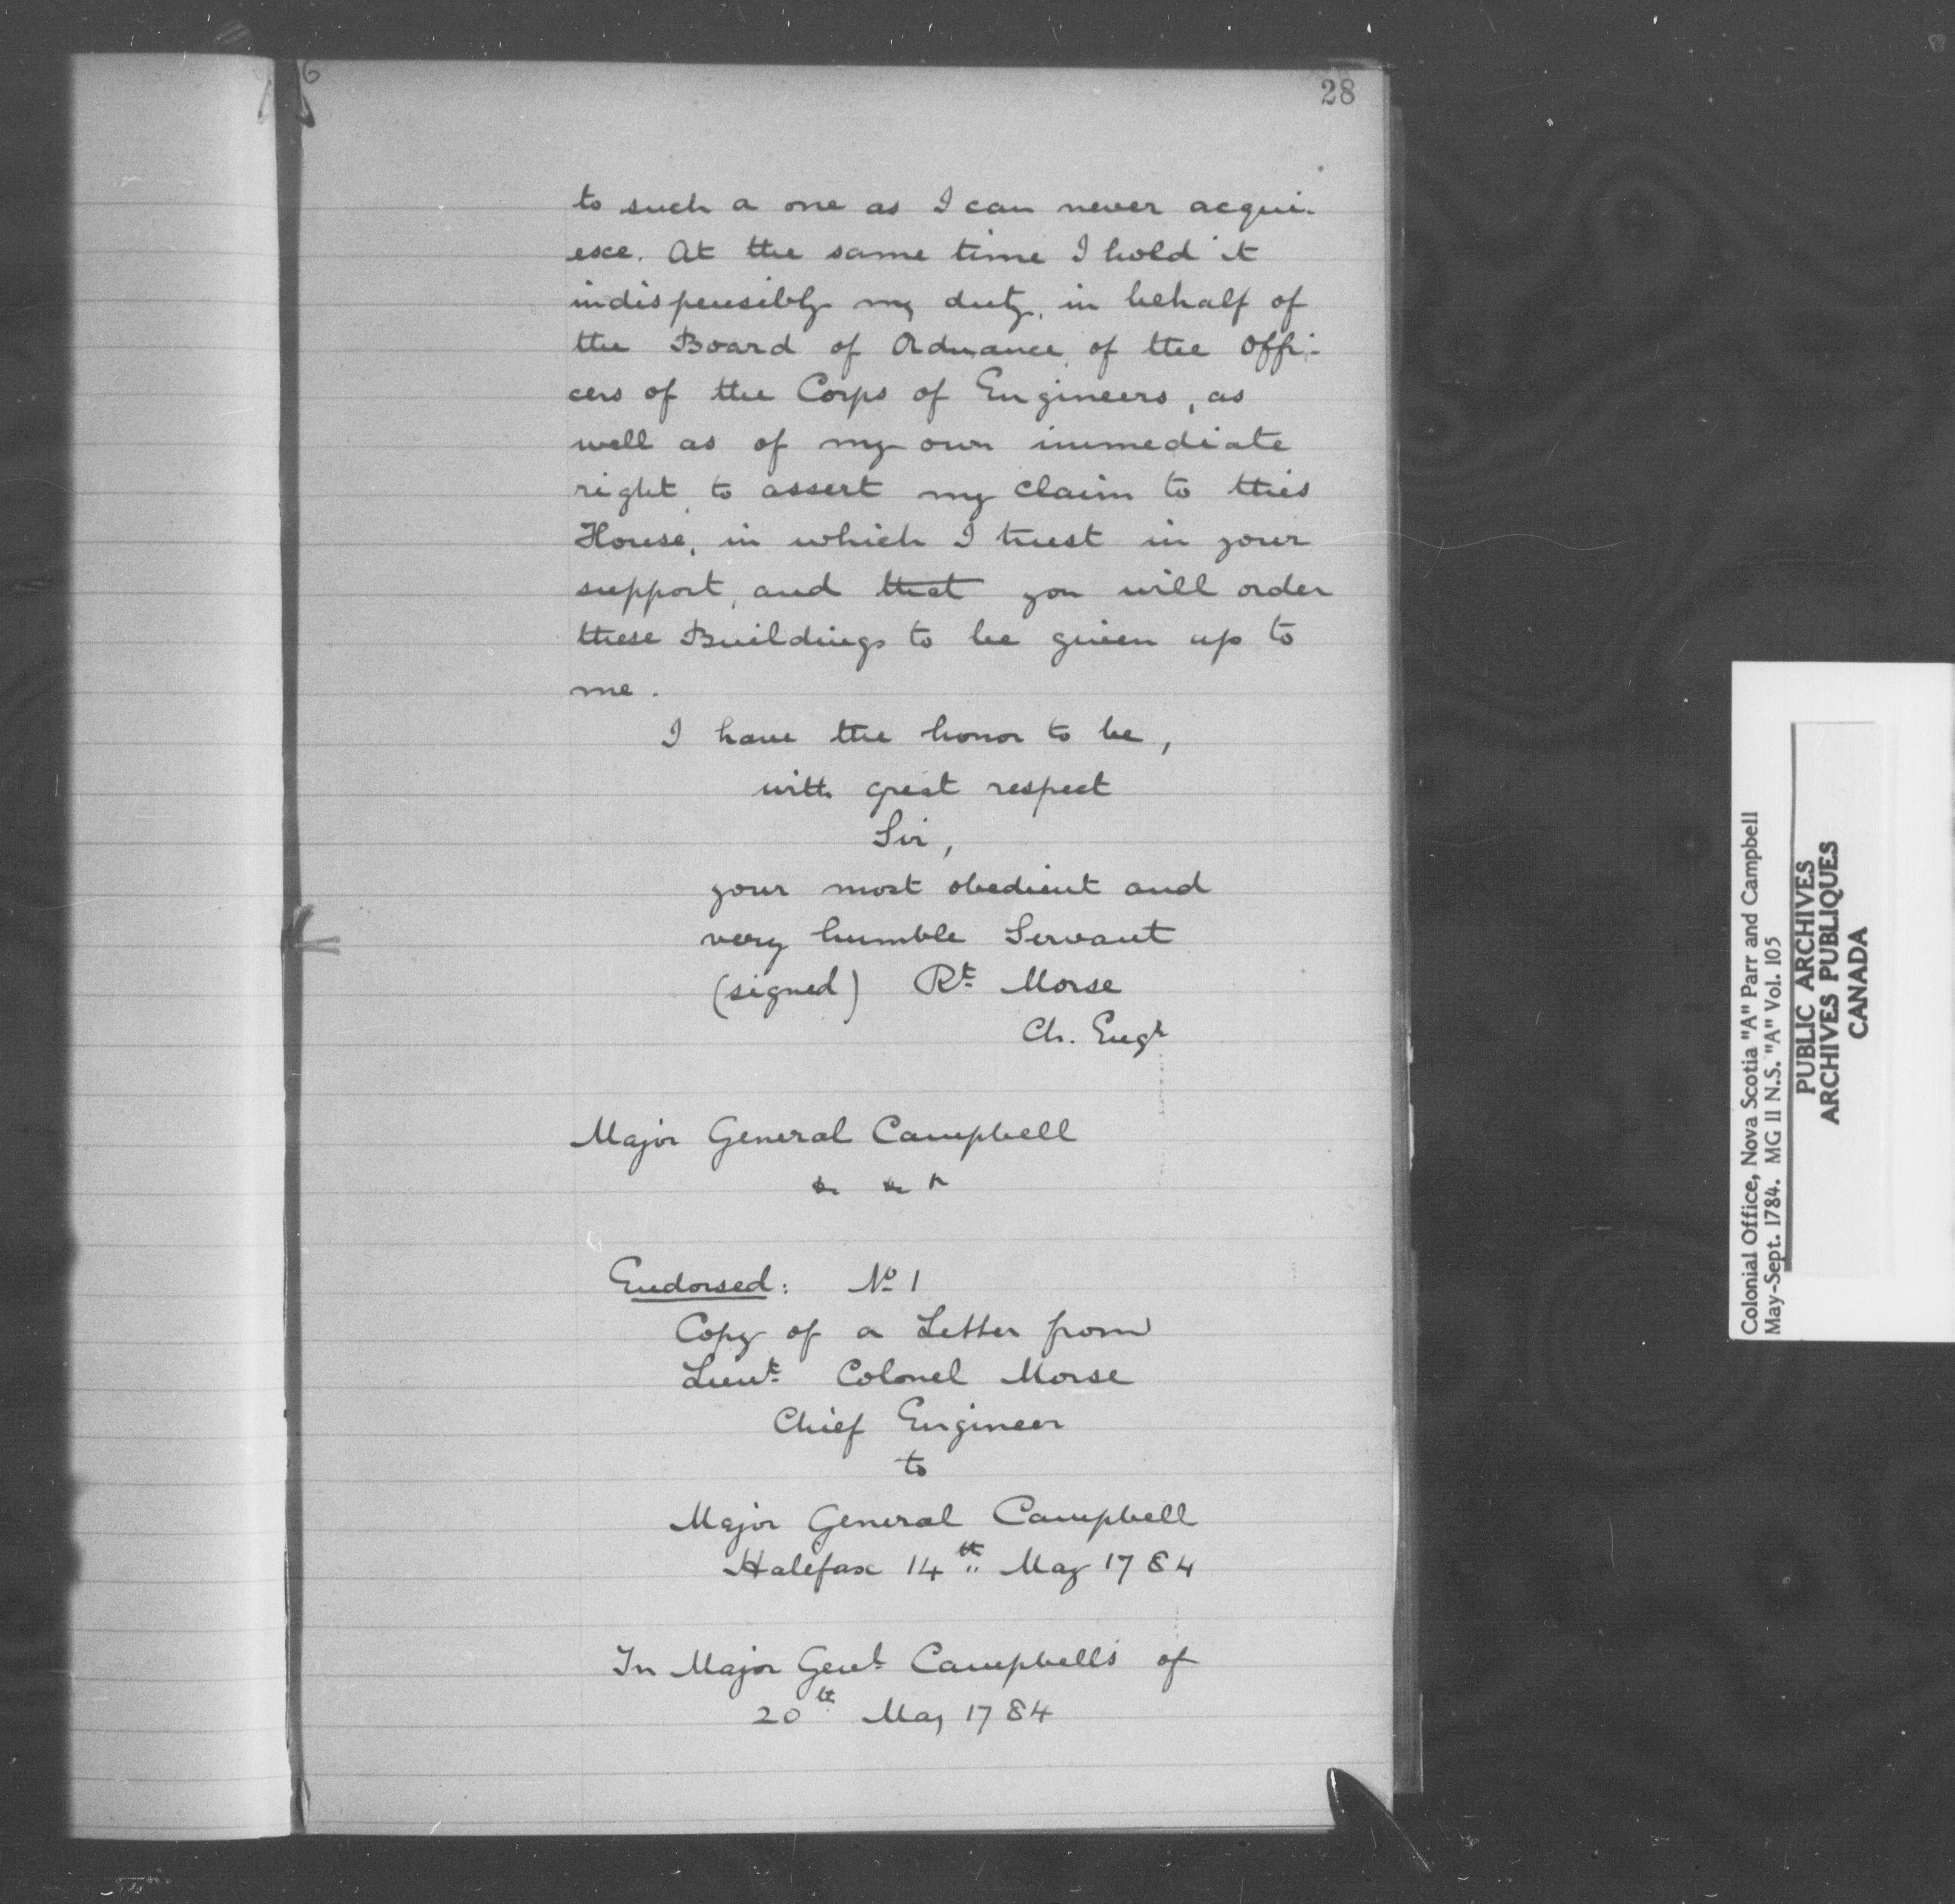 28
to such a one as I can never acqui-
esce. At the same time I hold it
indispensibly my duty, in behalf of
the Board of Ordnance, of the Offi-
cers of the Corps of Engineers, as
well as of my own immediate
right, to assert my claim to this
House, in which I trust in your
support, and that you will order
these Buildings to be given up to
me.
I have the honor to be,
with great respect
Sir,
your most obedient and
very humble Servant
(signed) Rt. Morse
Ch. Engr
Major General Campbell
&c &c &c
Endorsed: No 1
Copy of a Letter from
Lieut. Colonel Morse
Chief Engineer
to
Major General Campbell
Halifax 14th May 1784
In Major Genl. Campbells of
20th May 1784
Colonial Office, Nova Scotia "A" Parr and Campbell
May-Sept. 1784. MG 11 N.S. "A" Vol. 105
PUBLIC ARCHIVES
ARCHIVES PUBLIQUES
CANADA